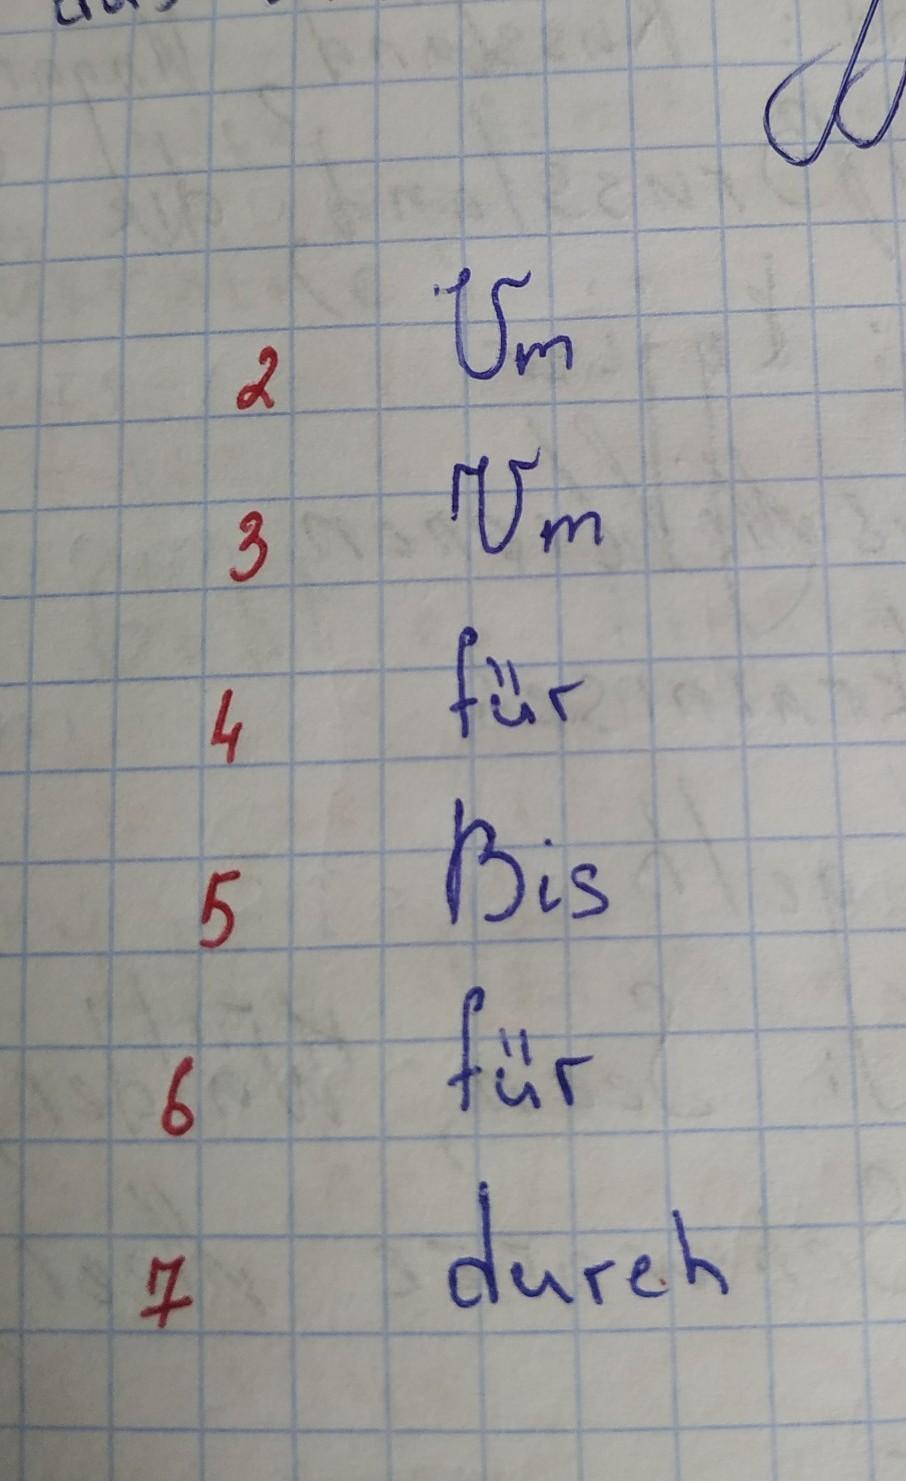 2 Um
3 Um
4 für
5 Bis
6 für
7 durch